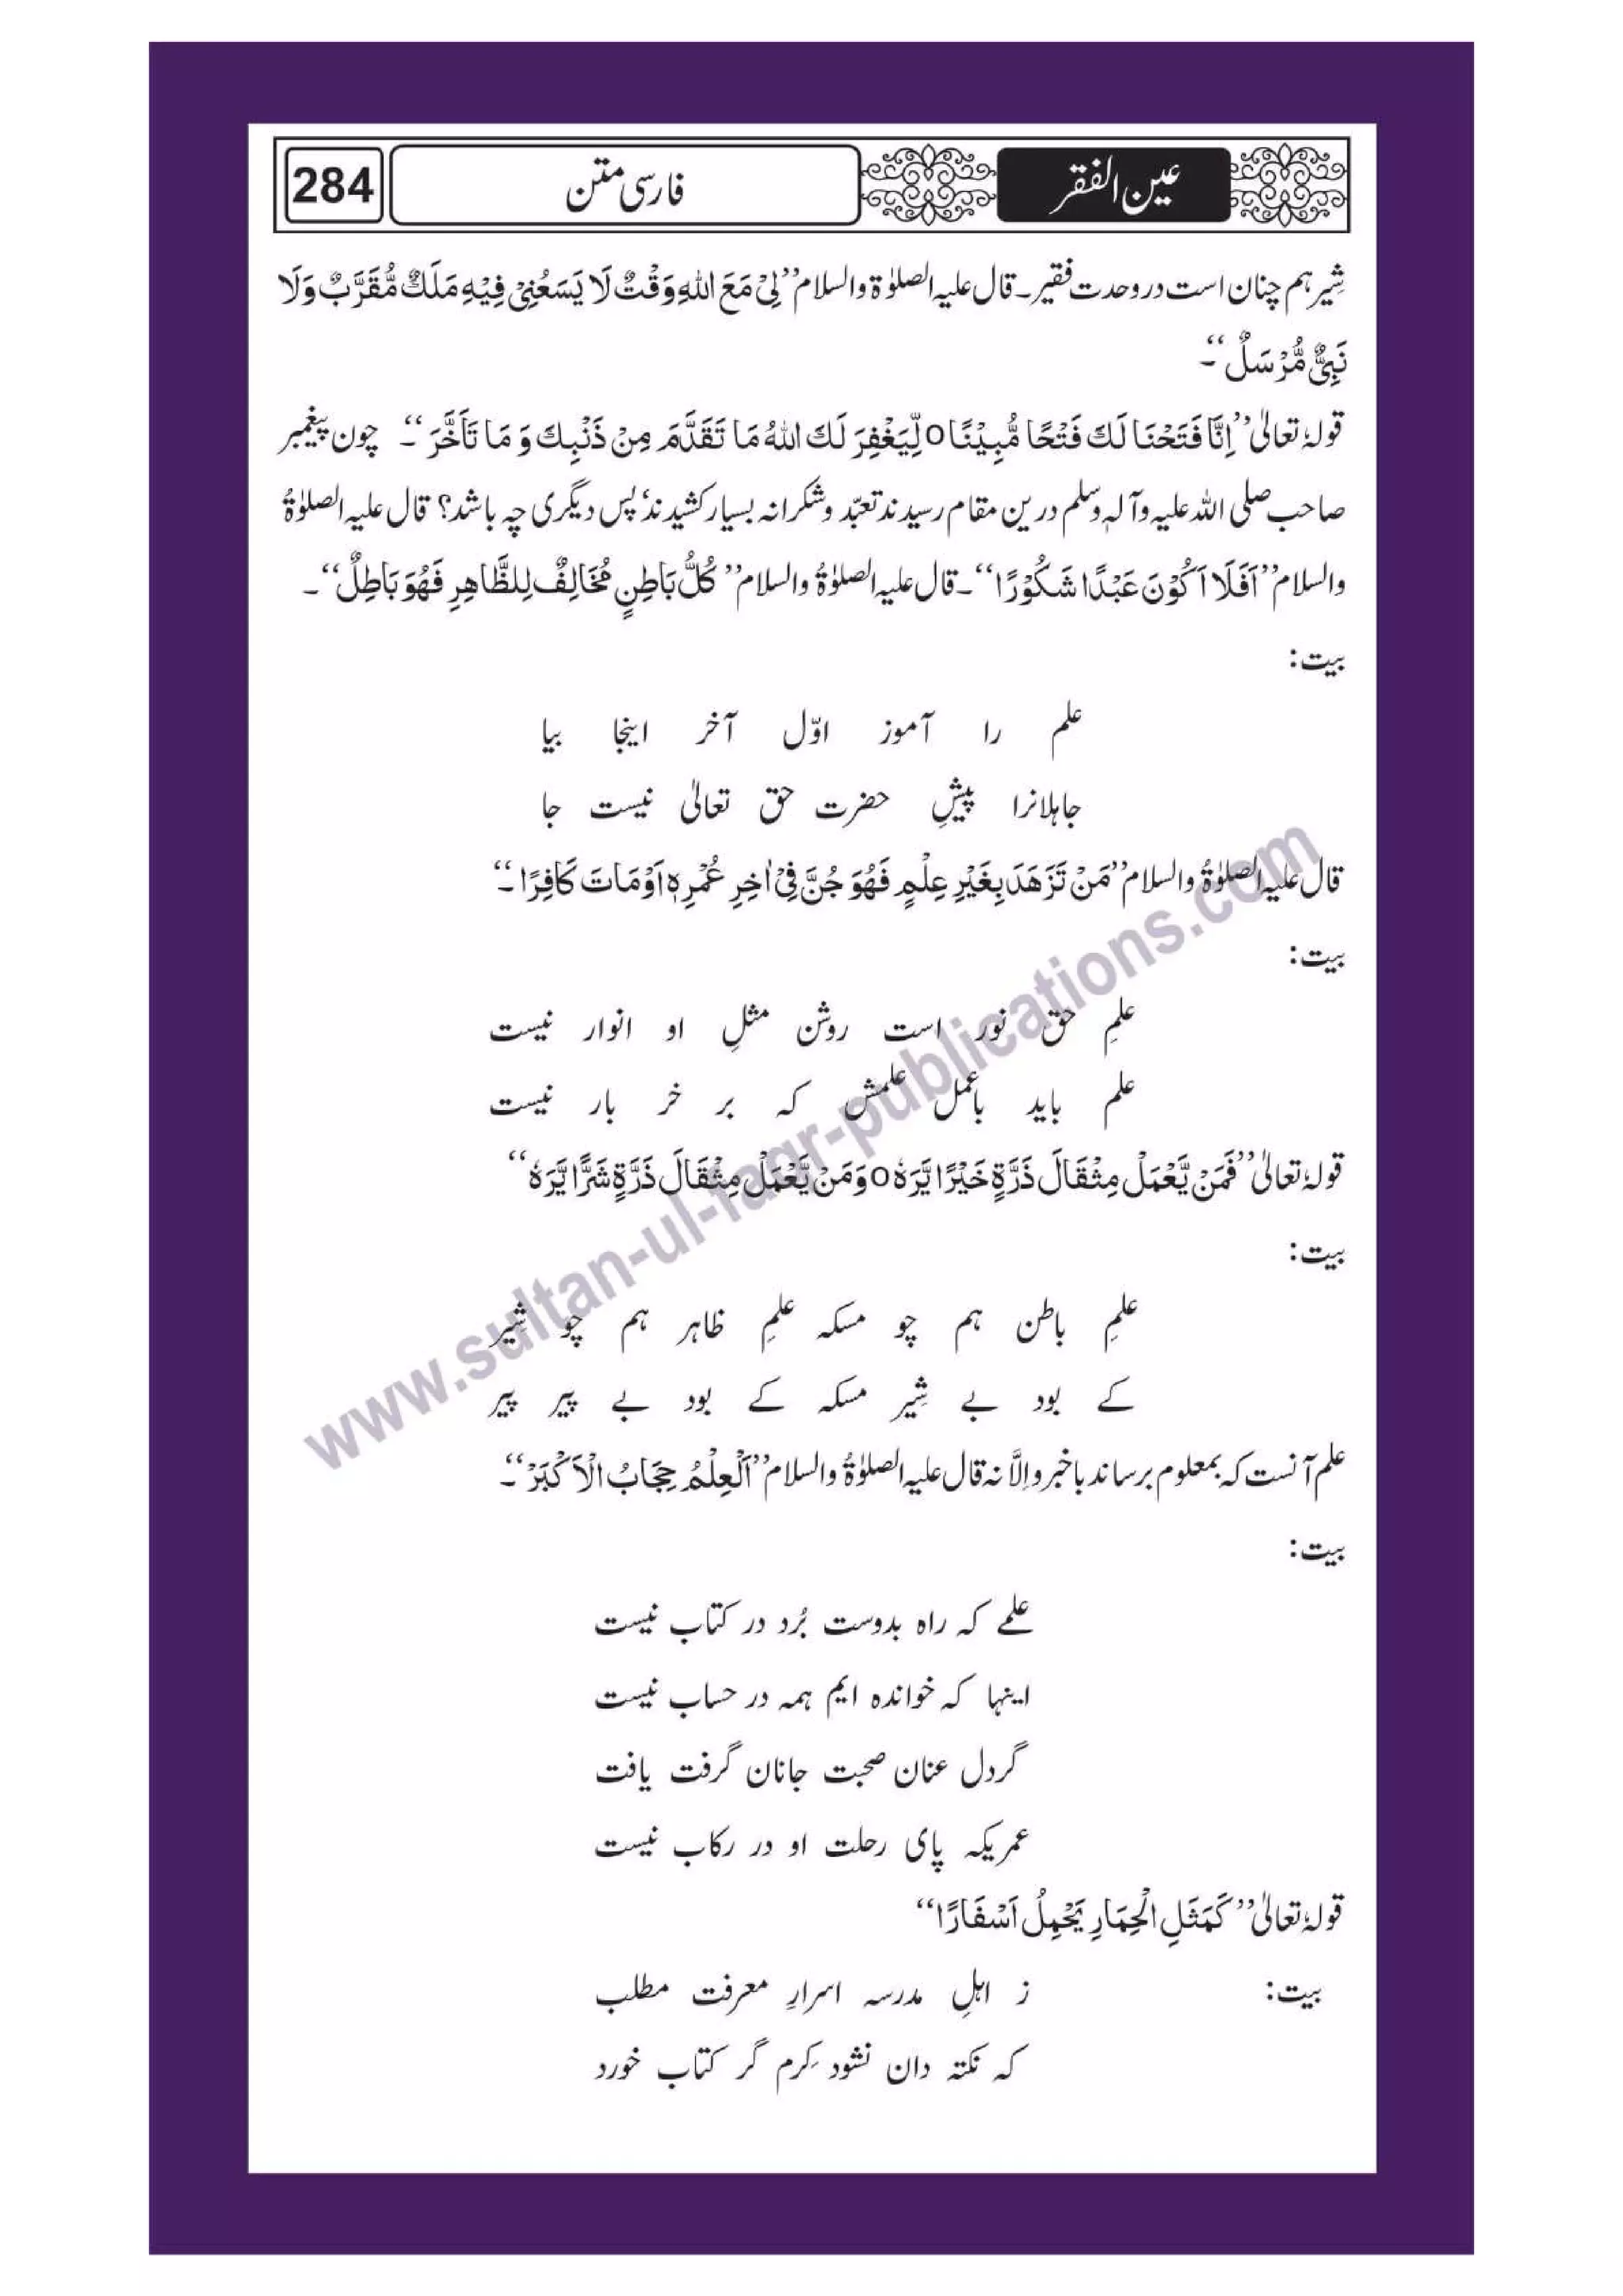 عین الفقر
فارسی متن
284
شِیر ہم چنان است در وحدت فقیر۔ قال علیہ الصلوٰۃ والسلام ’’لِیْ مَعَ اللهِ وَقْتٌ لَا یَسَعُنِیْ فِیْهِ مَلَكٌ مُّقَرَّبٌ وَلَا
نَبِیٌّ مُّرْسَلٌ‘‘۔
قولہٗ تعالیٰ ’’اِنَّا فَتَحْنَا لَكَ فَتْحًا مُّبِیْنًاo لِّیَغْفِرَ لَكَ اللهُ مَا تَقَدَّمَ مِنْ ذَنْبِكَ وَ مَا تَاَخَّرَ‘‘۔ چون پیغمبر
صاحب صلی اللہ علیہ وآلہٖ وسلم درین مقام رسیدند تعبّد و شکرانہ بسیار کشیدند‘ پس دیگری چہ باشد؟ قال علیہ الصلوٰۃُ
والسلام ’’اَفَلَا اَكُوْنَ عَبْدًا شَكُوْرًا‘‘۔ قال علیہ الصلوٰۃُ والسلام ’’كُلُّ بَاطِنٍ مُخَالِفٌ لِلظَّاهِرِ فَهُوَ بَاطِلٌ‘‘۔
بیت:
علم را آموز اوّل آخر اینجا بیا
جاہلانرا پیشِ حضرت حق تعالیٰ نیست جا
قال علیہ الصلوٰۃُ والسلام ’’مَنْ تَزَهَدَ بِغَیْرِ عِلْمٍ فَهُوَ جُنَّ فِیْ اٰخِرِ عُمْرِهٖ اَوْ مَاتَ كَافِرًا‘‘۔
بیت:
علمِ حق نور است روشن مثلِ او انوار نیست
علم باید باعمل علمش کہ بر خر بار نیست
قولہٗ تعالیٰ ’’فَمَنْ یَّعْمَلْ مِثْقَالَ ذَرَّةٍ خَیْرًا یَّرَهٗo وَمَنْ یَّعْمَلْ مِثْقَالَ ذَرَّةٍ شَرًّا یَّرَهٗ‘‘
بیت:
علمِ باطن ہم چو مسکہ علمِ ظاہر ہم چو شِیر
کے بود بے شِیر مسکہ کے بود بے پیر پیر
علم آنست کہ بمعلوم برساند باخبر و اِلَّا نہ قال علیہ الصلوٰۃُ والسلام ’’اَلْعِلْمُ حِجَابُ الْاَكْبَرْ‘‘۔
بیت:
علمے کہ راہ بدوست بُرد در کتاب نیست
اینہا کہ خواندہ ایم ہمہ در حساب نیست
گردل عنان صحبت جانان گرفت یافت
عمریکہ پای رحلت او در رکاب نیست
قولہٗ تعالیٰ ’’كَمَثَلِ الْحِمَارِ یَحْمِلُ اَسْفَارًا‘‘
بیت: ز اہلِ مدرسہ اسرارِ معرفت مطلب
کہ نکتہ دان نشود کِرم گر کتاب خورد
www.sultan-ul-faqr-publications.com